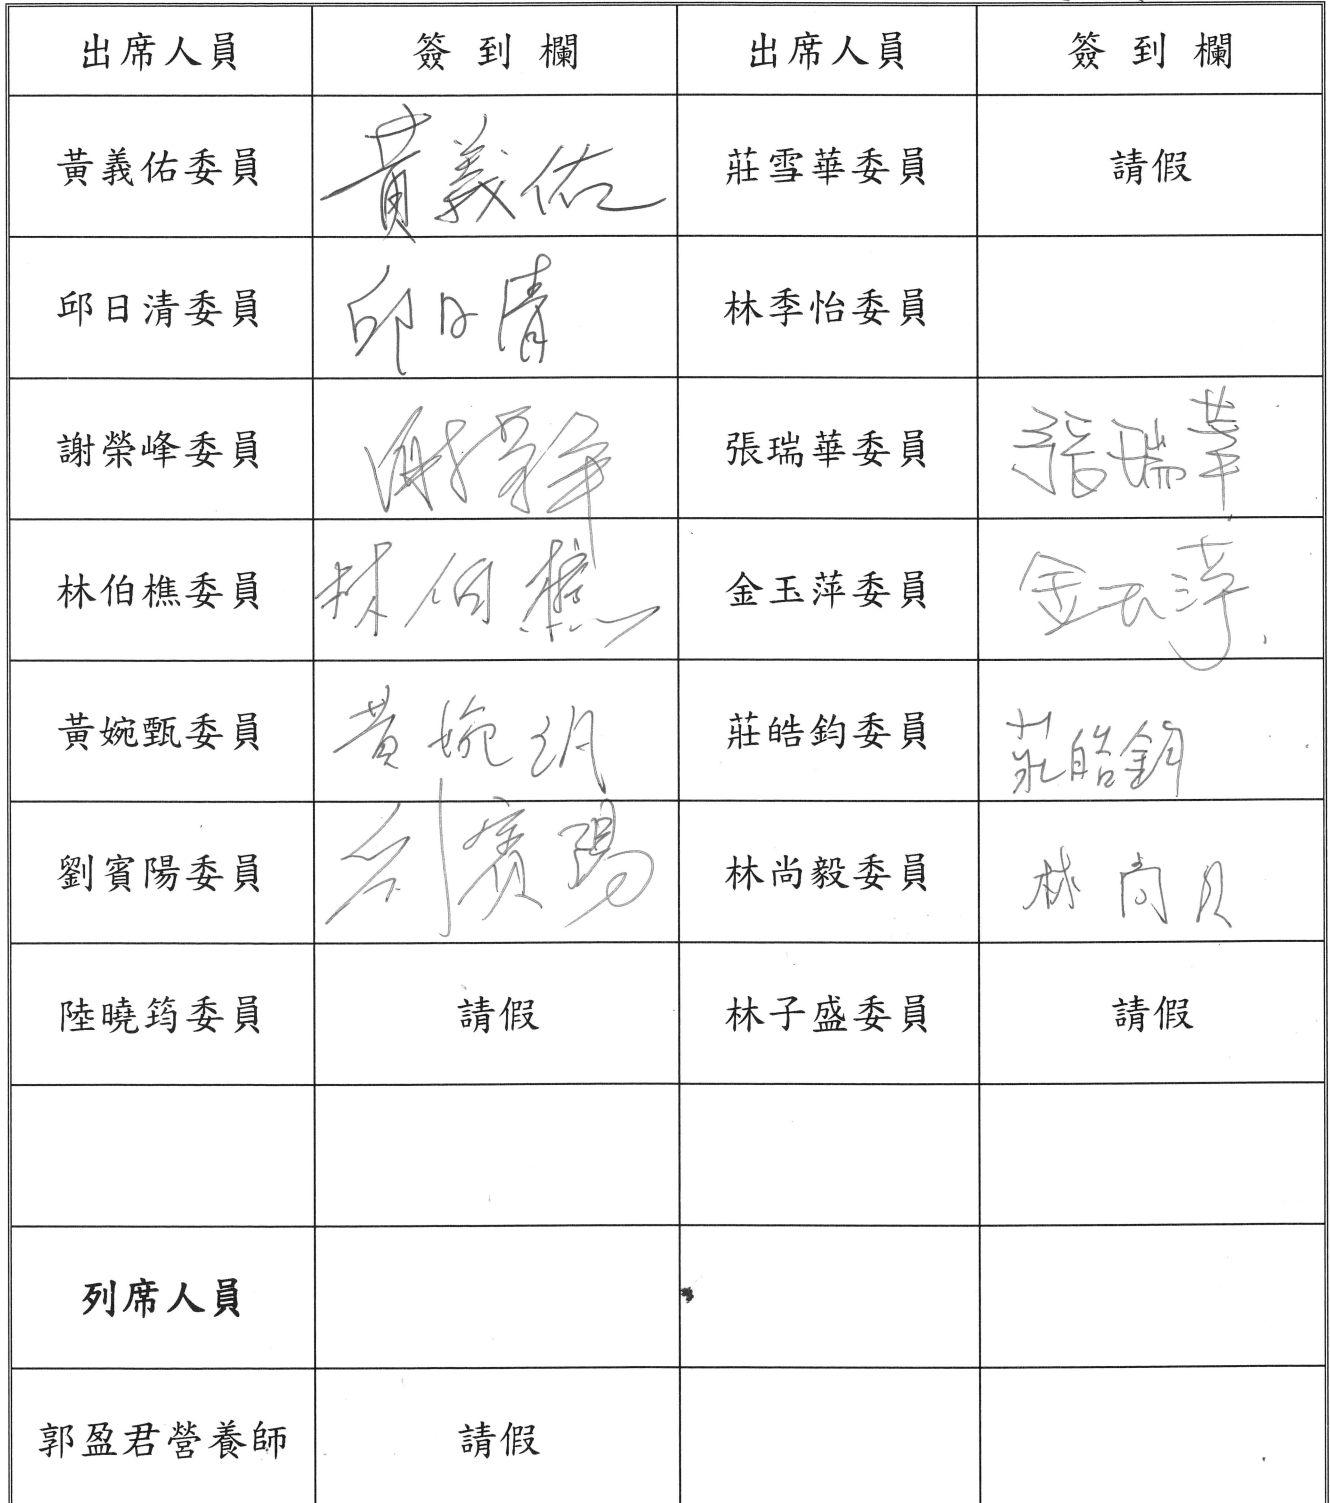 出席人員 簽到欄 出席人員 簽到欄
黃義佑委員 黃義佑 莊雪華委員 請假
邱日清委員 邱日清 林季怡委員
謝榮峰委員 謝榮峰 張瑞華委員 張瑞華
林伯樵委員 林伯樵 金玉萍委員 金玉萍
黃婉甄委員 黃婉 莊皓鈞委員 莊皓鈞
劉賓陽委員 刘賓陽 林尚毅委員 林尚
陸曉筠委員 請假 林子盛委員 請假
列席人員
郭盈君營養師 請假